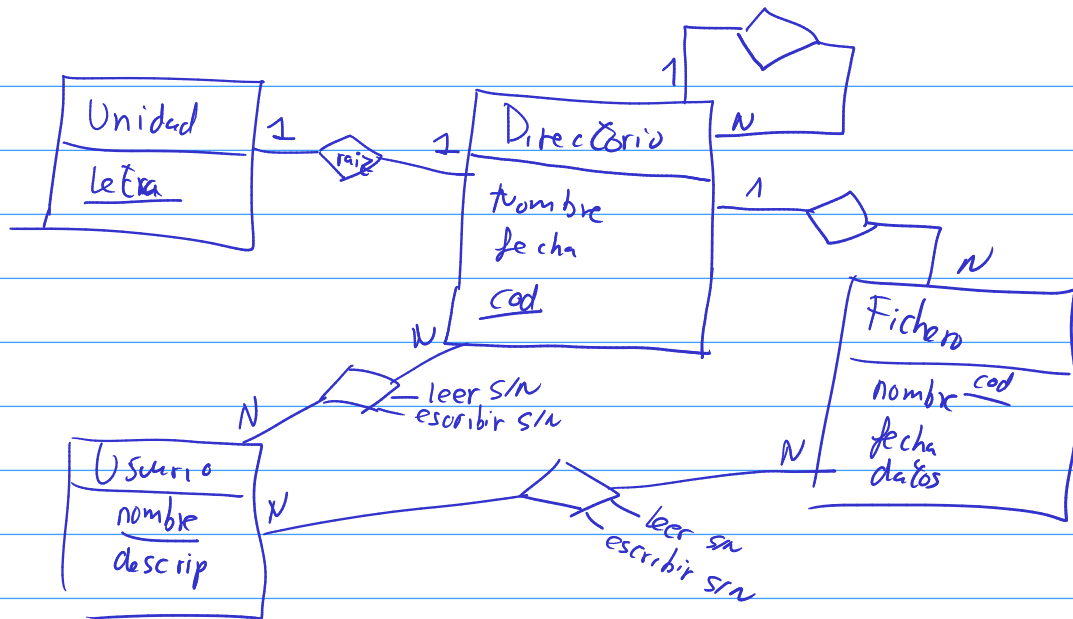 Unidad
letra
1
raiz
1
Directorio
Nombre
fecha
cod
1
N
1
N
Fichero
nombre cod
fecha
datos
N
N
leer S/N
escribir S/N
Usuario
nombre
descrip
N
N
leer S/N
escribir S/N